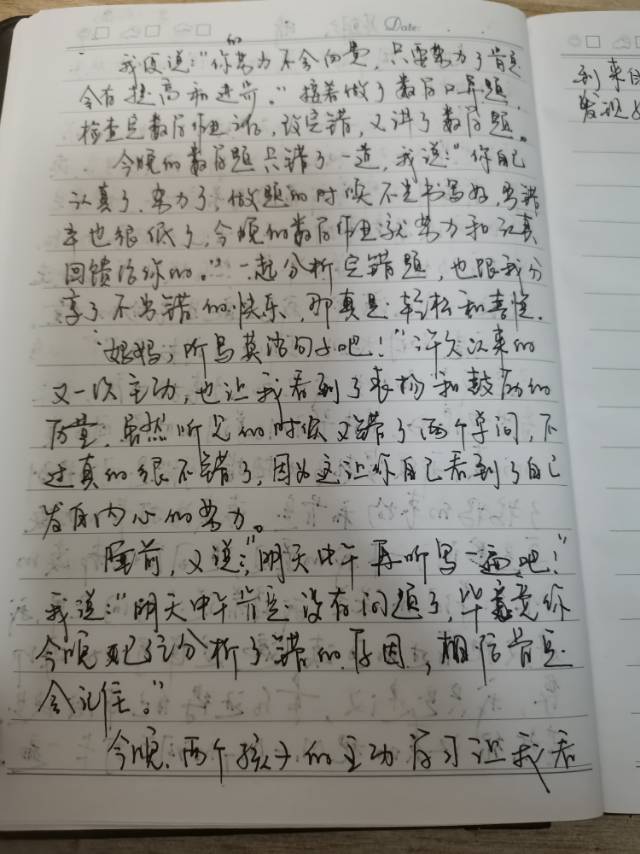 Date
我便说:"你的努力不会白费,只要努力了肯定
会有提高和进步。"接着做了数学口算题,
检查完数学作业后,改完错,又讲了数学题。
今晚的数学题只错了一道,我说:"你自己
认真了,努力了,做题的时候不光书写好,出错
率也很低了,今晚的数学作业就努力和认真
回馈给你的。"一起分析完错题,也跟我分
享了不出错的快乐,那真是轻松和喜悦。
"妈妈,听写英语句子吧!"许久次来的
又一次主动,也让我看到了表扬和鼓励的
力量,虽然听写的时候又错了两个单词,不
过真的很不错了,因为这让你自己看到了自己
发自内心的努力。
睡前,又说:"明天中午再听写一遍吧!"
我说:"明天中午肯定没有问题了,毕竟你
今晚已经分析了错的原因,相信肯定
会记住。"
今晚,两个孩子的主动学习让我看
到来自
发现